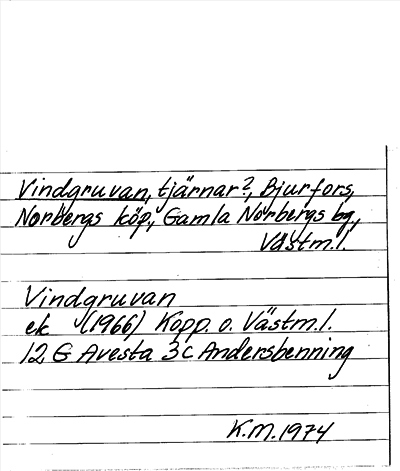 Vindgruvan, tjärnar?, Bjurfors,
Norbergs köp., Gamla Norbergs bg.,
Västm.l.
Vindgruvan
ek (1966) Kopp. o. Västm.l.
12 G Avesta 3c Andersbenning
K.M. 1974